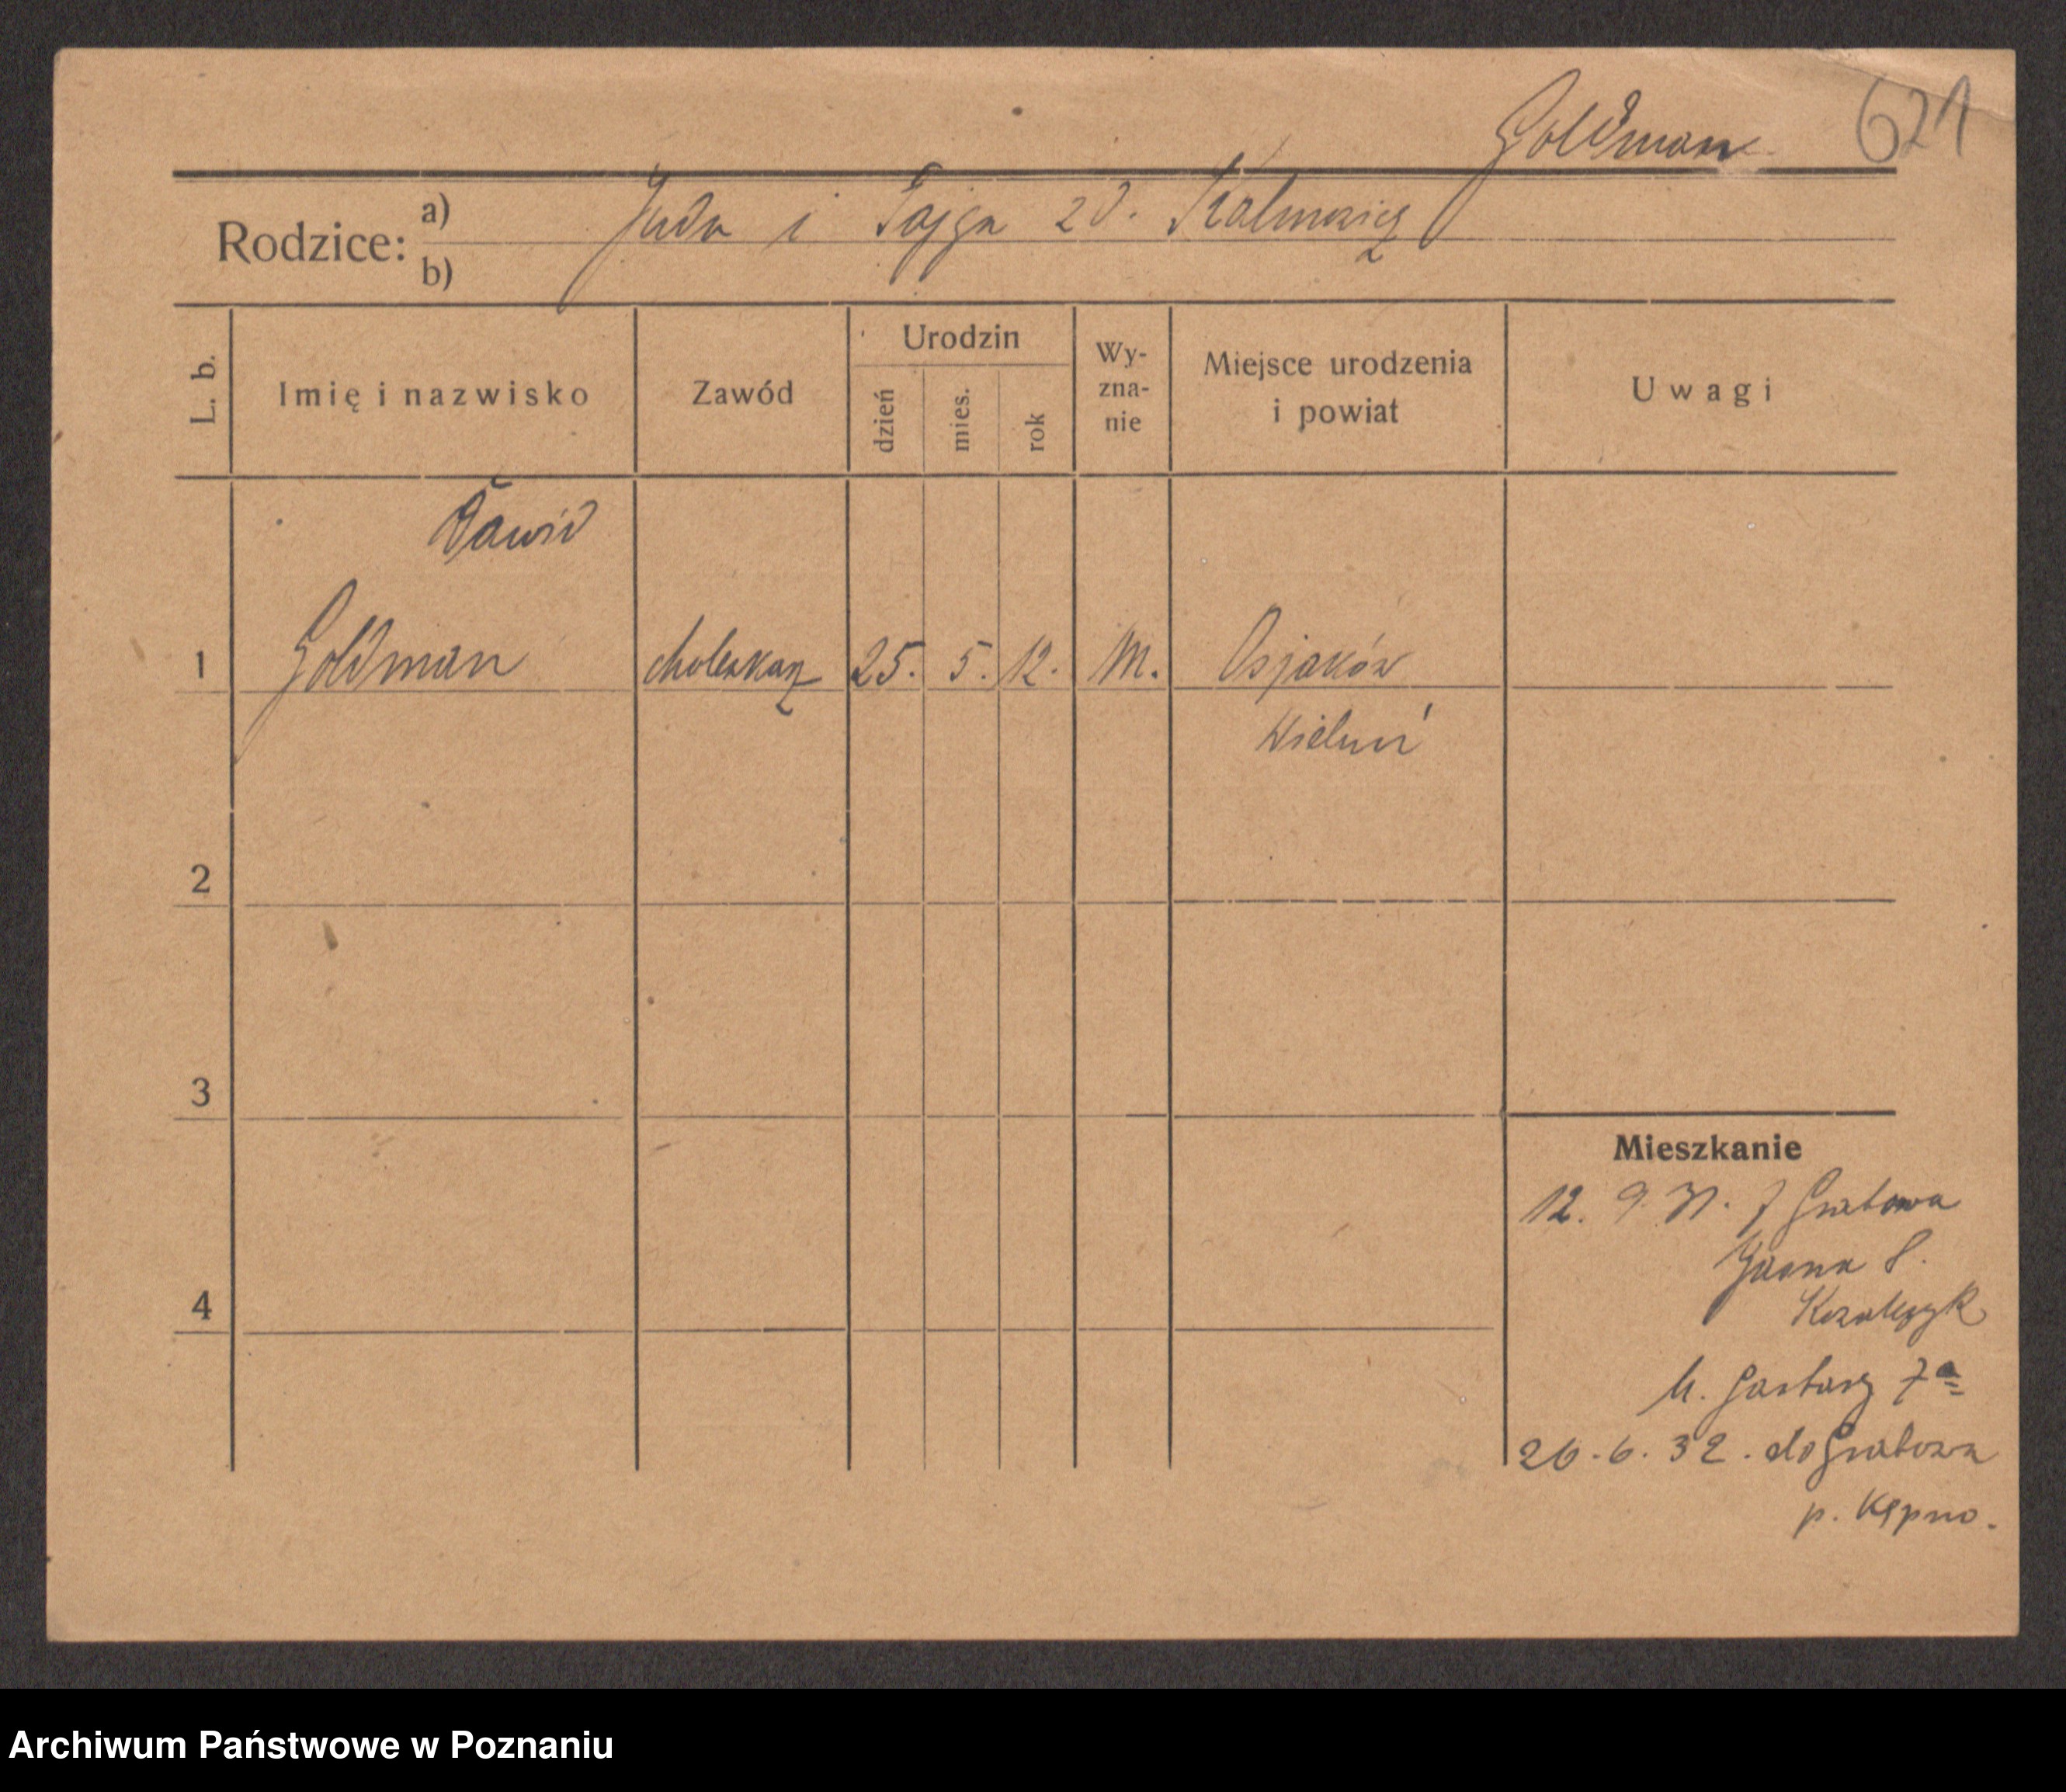 Goldman 621
Rodzice: a) Juda i Fajga zd. Kalmowicz
b)
L. b. Imię i nazwisko Zawód Urodzin dzień mies. rok Wy-zna-nie Miejsce urodzenia i powiat Uwagi
Dawid
1 Goldman cholewkarz 25. 5. 12. M. Osjaków
Wieluń
2
3
Mieszkanie
12. 9. 31. z Grabowa
4
M. Garbary 7a
26.6.32. do Grabowa
p. Kępno.
Archiwum Państwowe w Poznaniu